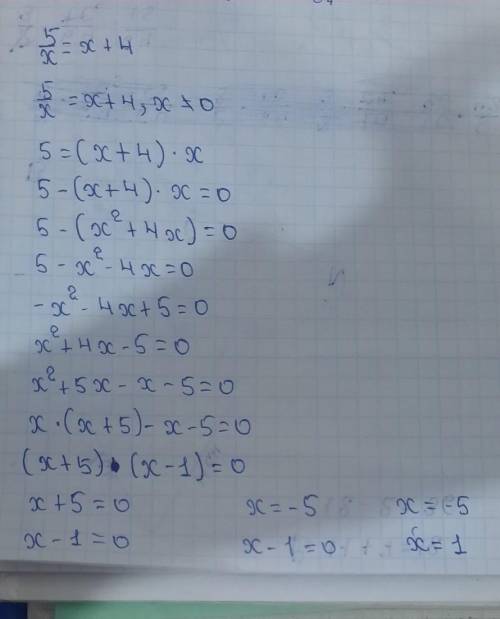 5/x = x + 4
5/x = x + 4, x ≠ 0
5 = (x + 4) · x
5 - (x + 4) · x = 0
5 - (x² + 4x) = 0
5 - x² - 4x = 0
-x² - 4x + 5 = 0
x² + 4x - 5 = 0
x² + 5x - x - 5 = 0
x · (x + 5) - x - 5 = 0
(x + 5) · (x - 1) = 0
x + 5 = 0 x = -5 x = -5
x - 1 = 0 x - 1 = 0 x = 1